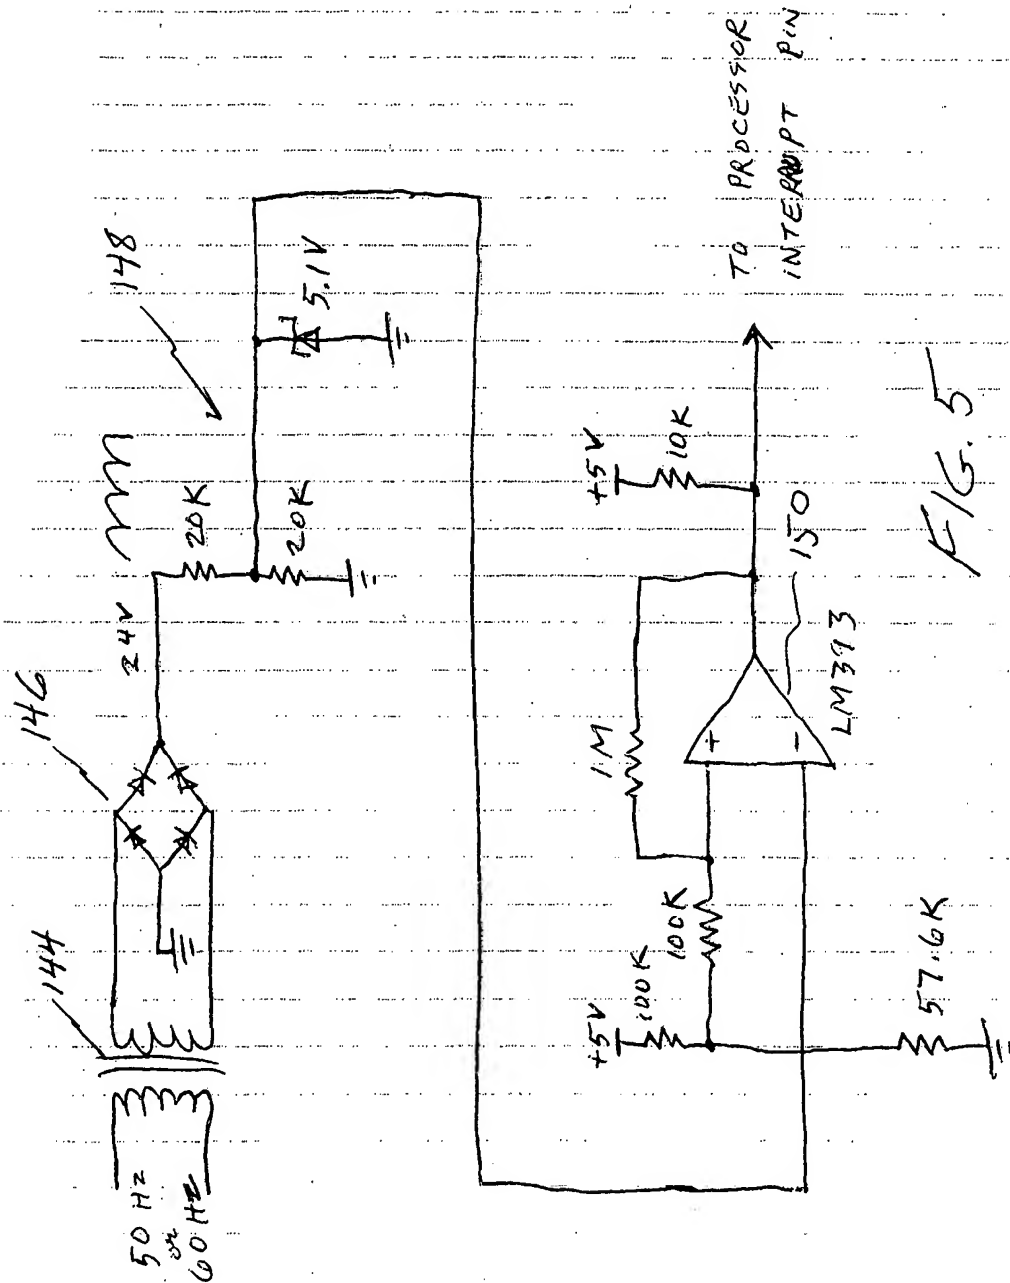 50 Hz
or
60 Hz
144
146
24V
20K
20K
148
5.1V
+5V
100K
100K
57.6K
1M
+
-
LM393
150
+5V
10K
TO PROCESSOR
INTERRUPT PIN
FIG. 5